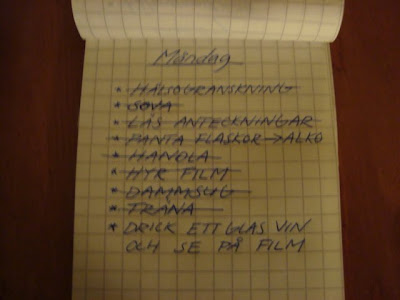 Måndag
* HÄLSOGRANSKNING
* SOVA
* LÄS ANTECKNINGAR
* PANTA FLASKOR → ALKO
* HANDLA
* HYR FILM
* DAMMSUG
* TRÄNA
* DRICK ETT GLAS VIN
OCH SE PÅ FILM